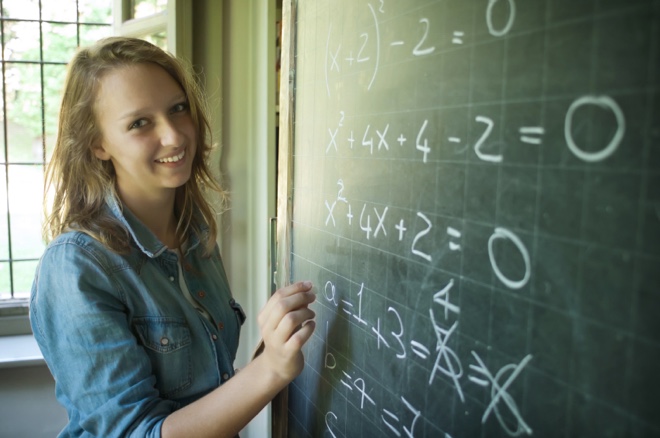 (x+2)² - 2 = 0
x² + 4x + 4 - 2 = 0
x² + 4x + 2 = 0
a = 1 + 3 = 4
b = 4